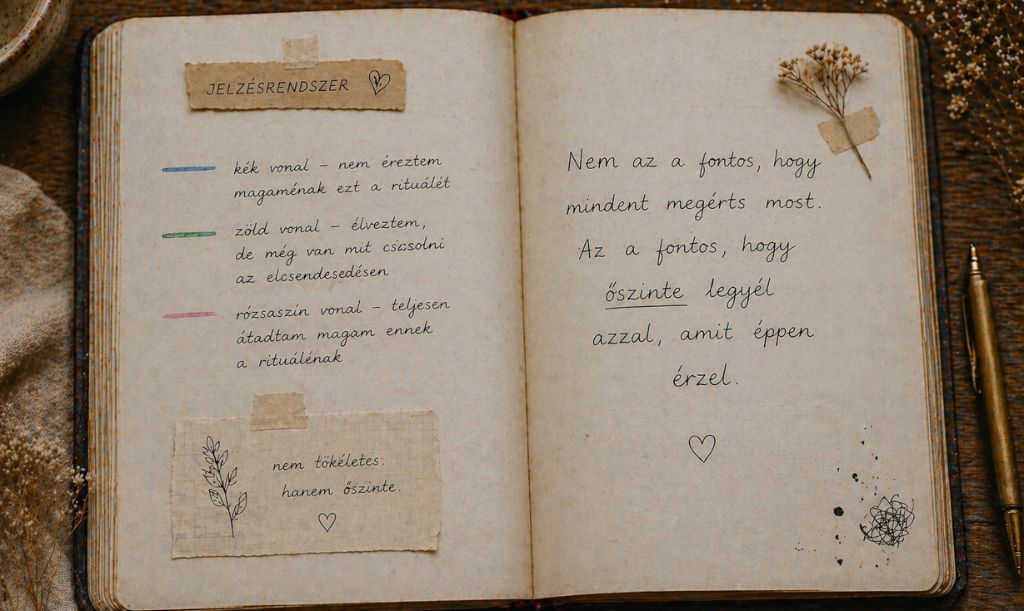 JELZÉSRENDSZER
kék vonal – nem éreztem
magaménak ezt a rituálét
zöld vonal – élveztem,
de még van mit csiszolni
az elcsendesedésen
rózsaszín vonal – teljesen
átadtam magam ennek
a rituálénak
nem tökéletes.
hanem őszinte.
Nem az a fontos, hogy
mindent megérts most.
Az a fontos, hogy
őszinte legyél
azzal, amit éppen
érzel.